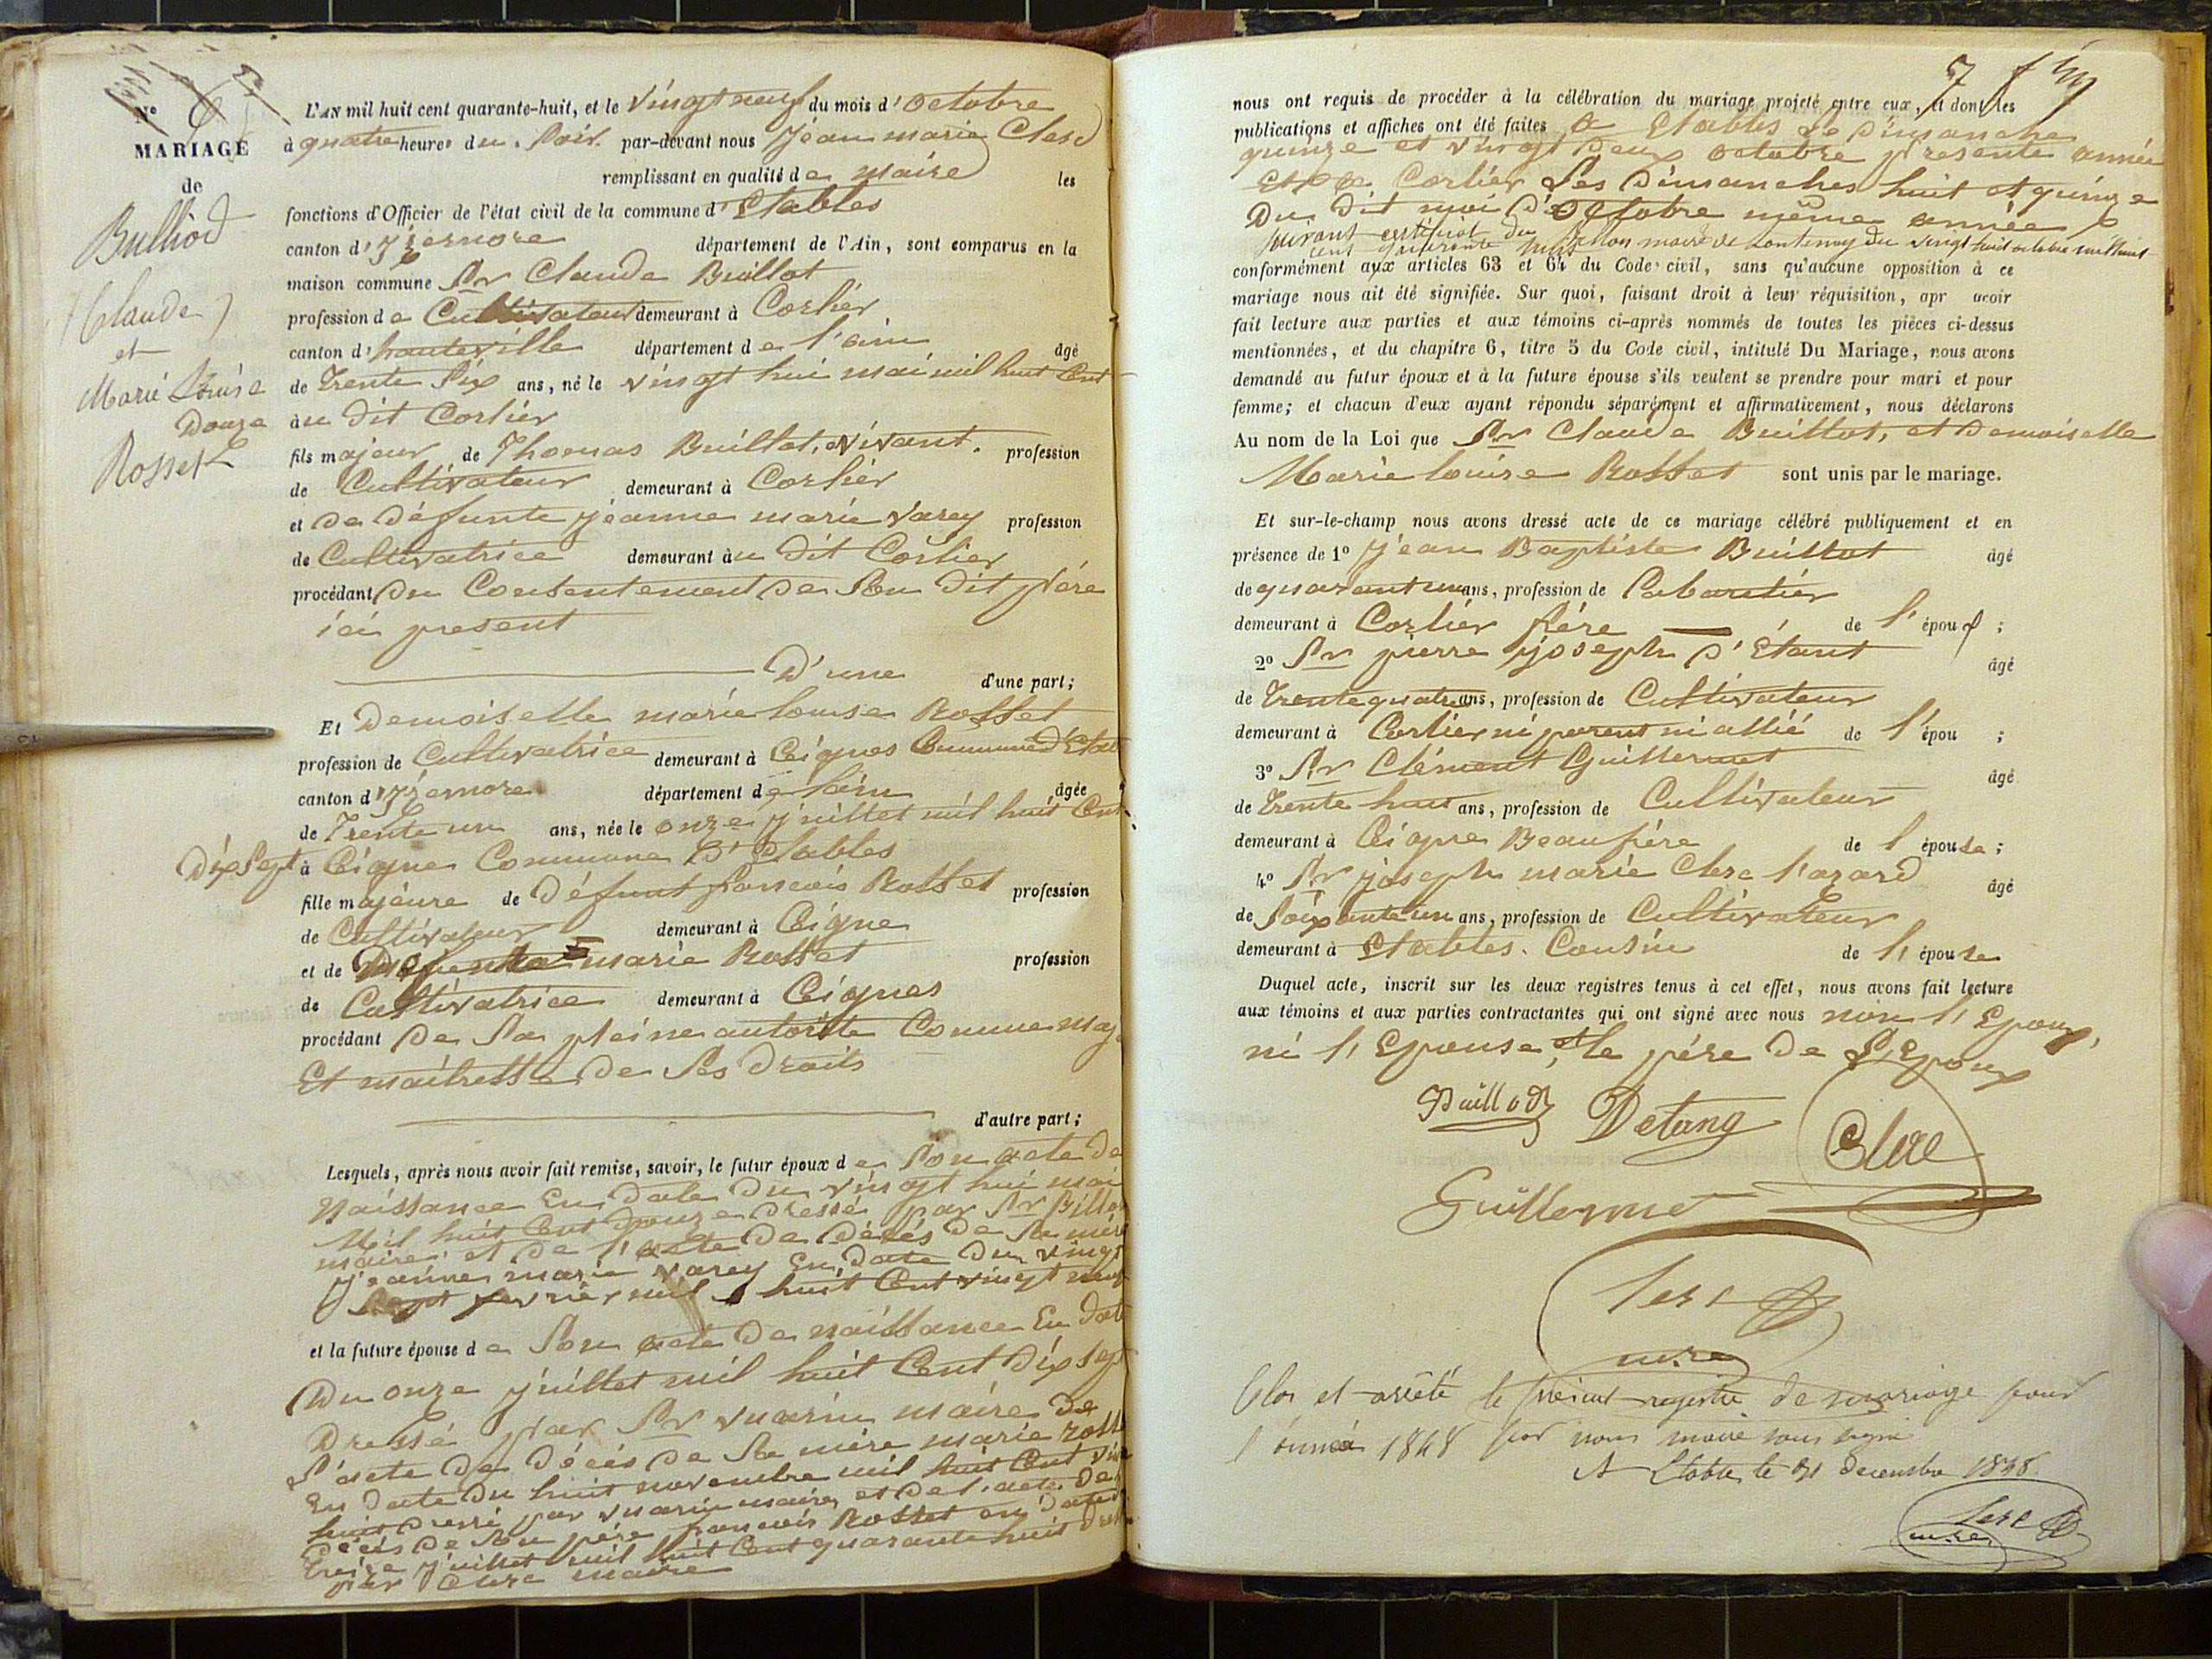 N° 6
MARIAGE
de
Bulliod
Claude
et
Marie Louise
Rosset
L'AN mil huit cent quarante-huit, et le vingt neuf du mois d'octobre
à quatre heures du Soir. par-devant nous Jean marie Clerc
remplissant en qualité de maire les
fonctions d'Officier de l'état civil de la commune d'Etables
canton d'izernore département de l'Ain, sont comparus en la
maison commune Sr Claude Buillot
profession de Cultivateur demeurant à Corlier
canton d'hauteville département de l'ain âgé
de Trente Six ans, né le vingt hui mai mil huit Cent
Douze au dit Corlier
fils majeur de Thomas Buillot, vivant. profession
de Cultivateur demeurant à Corlier
et De défunte jeanne marie Varey profession
de Cultivatrice demeurant au dit Corlier
procédant Du Consentement de Son Dit père
ici present
D'une d'une part;
Et Demoiselle marie louise Rosset
profession de Cultivatrice demeurant à Ceignes Commune d'Etab
canton d'izernore département de lain âgée
de Trente un ans, née le onze juillet mil huit Cent
Dix Sept à Ceigne Commune D'Etables
fille majeure de Défunt francois Rosset profession
de Cultivateur demeurant à Ceigne
et de Defunte marie Rosset profession
de Cultivatrice demeurant à Ceignes
procédant De Sa pleine autorité Comme maj
Et maitresse de Ses Droits
d'autre part;
Lesquels, après nous avoir fait remise, savoir, le futur époux de Son acte de
Naissance En date du vingt hui mai
Mil huit Cent Douze dressé par Sr Billo
maire, et de l'acte de Décés de Sa mère
jeanne marie Varey En date du vingt
Sept fevrier mil huit Cent vingt neuf
et la future épouse de Son acte De naissance En date
Du onze juillet mil huit Cent Dix Sept
Dressé par Sr vuarin maire de
L'acte De Décés de Sa mère marie rosse
En date du huit novembre mil huit Cent vin
huit dressé par vuarin maire, et de l'acte de
Décés de Son père francois Rosset en date
Treize juillet mil huit Cent quarante huit dres
par Clerc maire
7
nous ont requis de procéder à la célébration du mariage projeté entre eux, et dont les
publications et affiches ont été faites a Etables le Dimanche
quinze et vingt Deux octobre presente année
Et a Corlier Les Dimanches huit et quinze
Du dit moi D'octobre même année
suivant certificat du maire de Lantenay du vingt huit octobre mil huit
cent quarante huit
conformément aux articles 63 et 64 du Code civil, sans qu'aucune opposition à ce
mariage nous ait été signifiée. Sur quoi, faisant droit à leur réquisition, apr avoir
fait lecture aux parties et aux témoins ci-après nommés de toutes les pièces ci-dessus
mentionnées, et du chapitre 6, titre 5 du Code civil, intitulé Du Mariage, nous avons
demandé au futur époux et à la future épouse s'ils veulent se prendre pour mari et pour
femme; et chacun d'eux ayant répondu séparément et affirmativement, nous déclarons
Au nom de la Loi que Sr Claude Buillot, et Demoiselle
Marie louise Rosset sont unis par le mariage.
Et sur-le-champ nous avons dressé acte de ce mariage célébré publiquement et en
présence de 1° Jean Baptiste Buillot âgé
de quarant un ans, profession de Cabaretier
demeurant à Corlier frère de l'époux ;
2° Sr pierre joseph D'Etant âgé
de Trente quatre ans, profession de Cultivateur
demeurant à Corlier ni parent ni allié de l'épou ;
3° Sr Clément Guillermet âgé
de Trente huit ans, profession de Cultivateur
demeurant à Ceigne Beaufrère de l épouse ;
4° Sr joseph marie Clerc l'azard âgé
de Soixante un ans, profession de Cultivateur
demeurant à Etables. Cousin de l'épouse
Duquel acte, inscrit sur les deux registres tenus à cet effet, nous avons fait lecture
aux témoins et aux parties contractantes qui ont signé avec nous non l'Epoux,
ni l'Epouse, et le père De L'Epoux
Buillod Detang Clerc
Guillermet
Clerc
mre
Clos et arrêté le présent registre de mariage pour
l'année 1848 par nous maire sous signé
A Etables le 31 decembre 1848.
Clerc
mre